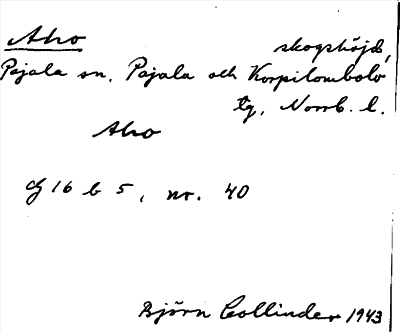 Aho skogshöjd,
Pajala sn, Pajala och Korpilombolo
tg, Norrb. l.
Aho
g 16 b 5, nr. 40
Björn Collinder 1943